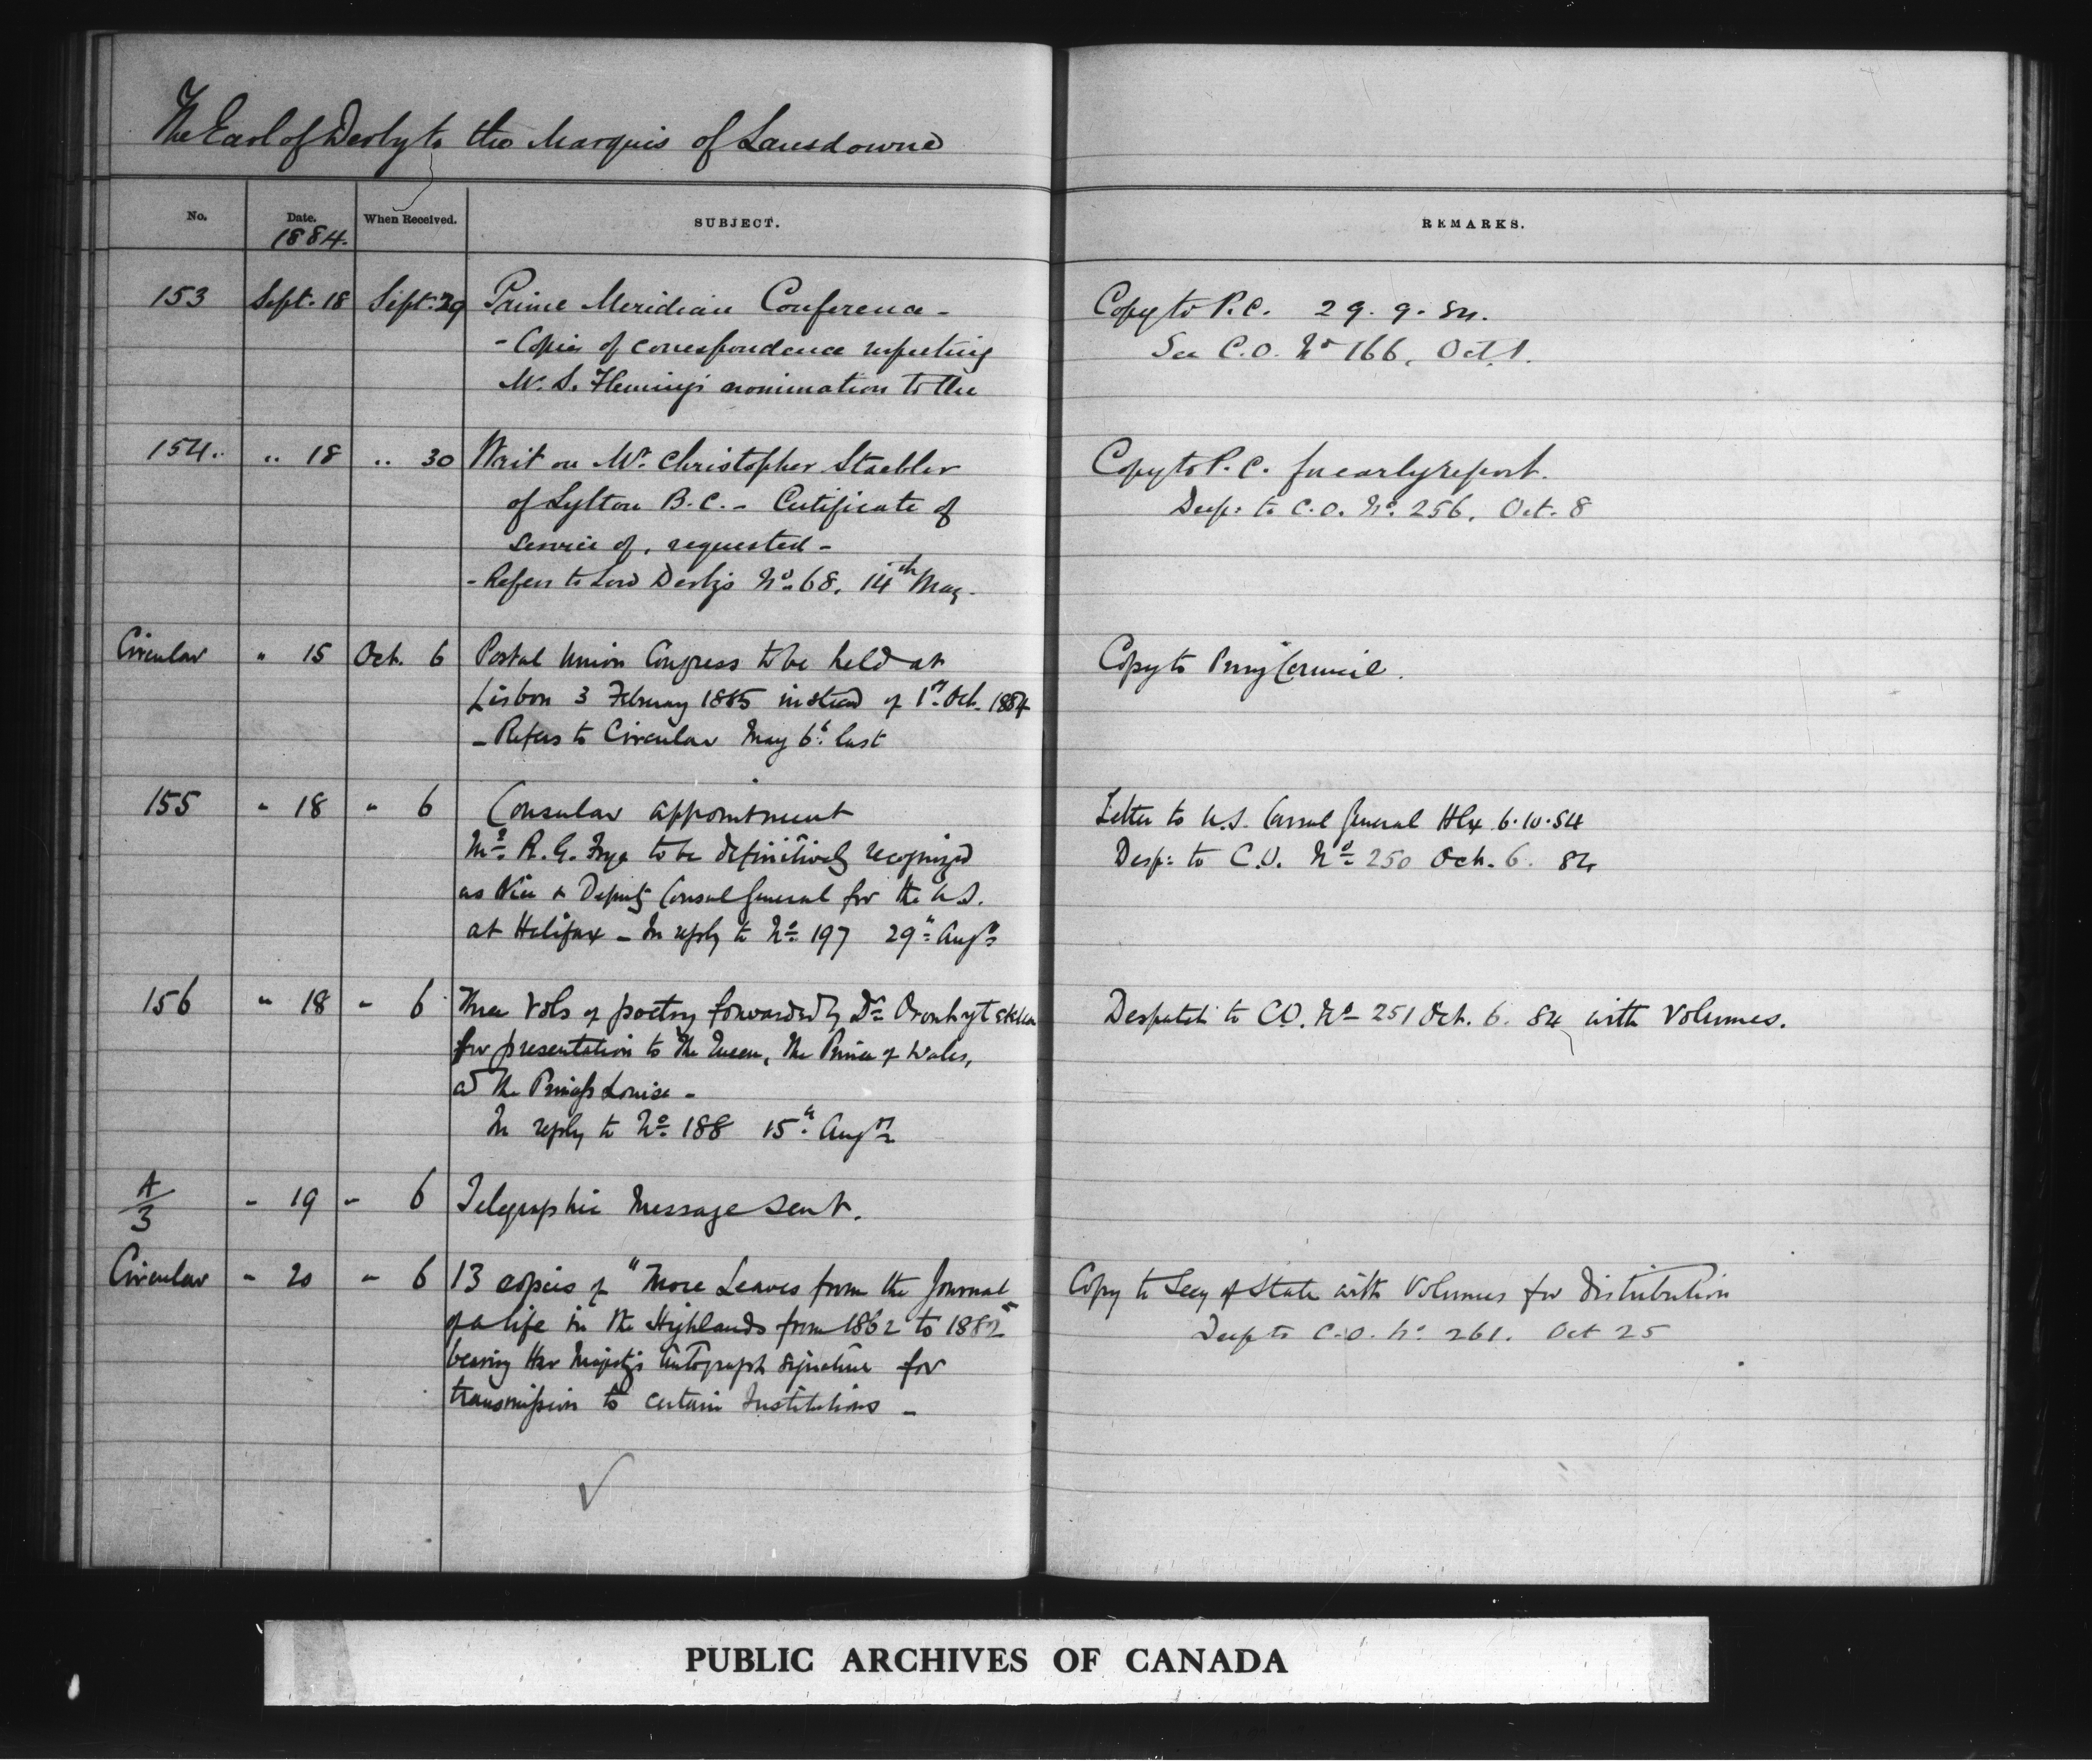 The Earl of Derby to the Marquis of Lansdowne
No. Date. When Received. SUBJECT. REMARKS.
1884.
153 Sept. 18 Sept. 29 Prime Meridian Conference - Copy to P.C. 29.9.84.
- Copies of correspondence respecting See C.O. No 166, Oct. 1.
Mr. S. Fleming's nomination to the
154. " 18 " 30 Writ on Mr. Christopher Staebler Copy to P.C. for early report.
of Lytton B.C. - Certificate of Desp: to C.O. No. 256. Oct. 8
service of, requested -
- Refers to Lord Derby's No. 68. 14th May -
Circular " 15 Oct. 6 Postal Union Congress to be held at Copy to Privy Council.
Lisbon 3 February 1885 instead of 1st Oct. 1884
- Refers to Circular May 6th last
155 " 18 " 6 Consular appointment Letter to U.S. Consul General Hlx 6.10.84
Mr. R. G. Frye to be definitively recognized Desp: to C.O. No 250 Oct. 6. 84
as Vice & Deputy Consul General for the U.S.
at Halifax - In reply to No 197 29th Augst
156 " 18 " 6 Three Vols of poetry forwarded by Dr Oronhyatekha Despatch to CO. No 251 Oct. 6. 84 with Volumes.
for presentation to The Queen, The Prince of Wales,
and The Princess Louise -
In reply to No 188 15th Augst
A/3 " 19 " 6 Telegraphic Message sent.
Circular " 20 " 6 13 copies of "More Leaves from the Journal Copy to Secy of State with Volumes for distribution
of a life in the Highlands from 1862 to 1882" Desp to C.O. No. 261. Oct 25
bearing Her Majesty's Autograph signature for
transmission to certain Institutions -
PUBLIC ARCHIVES OF CANADA